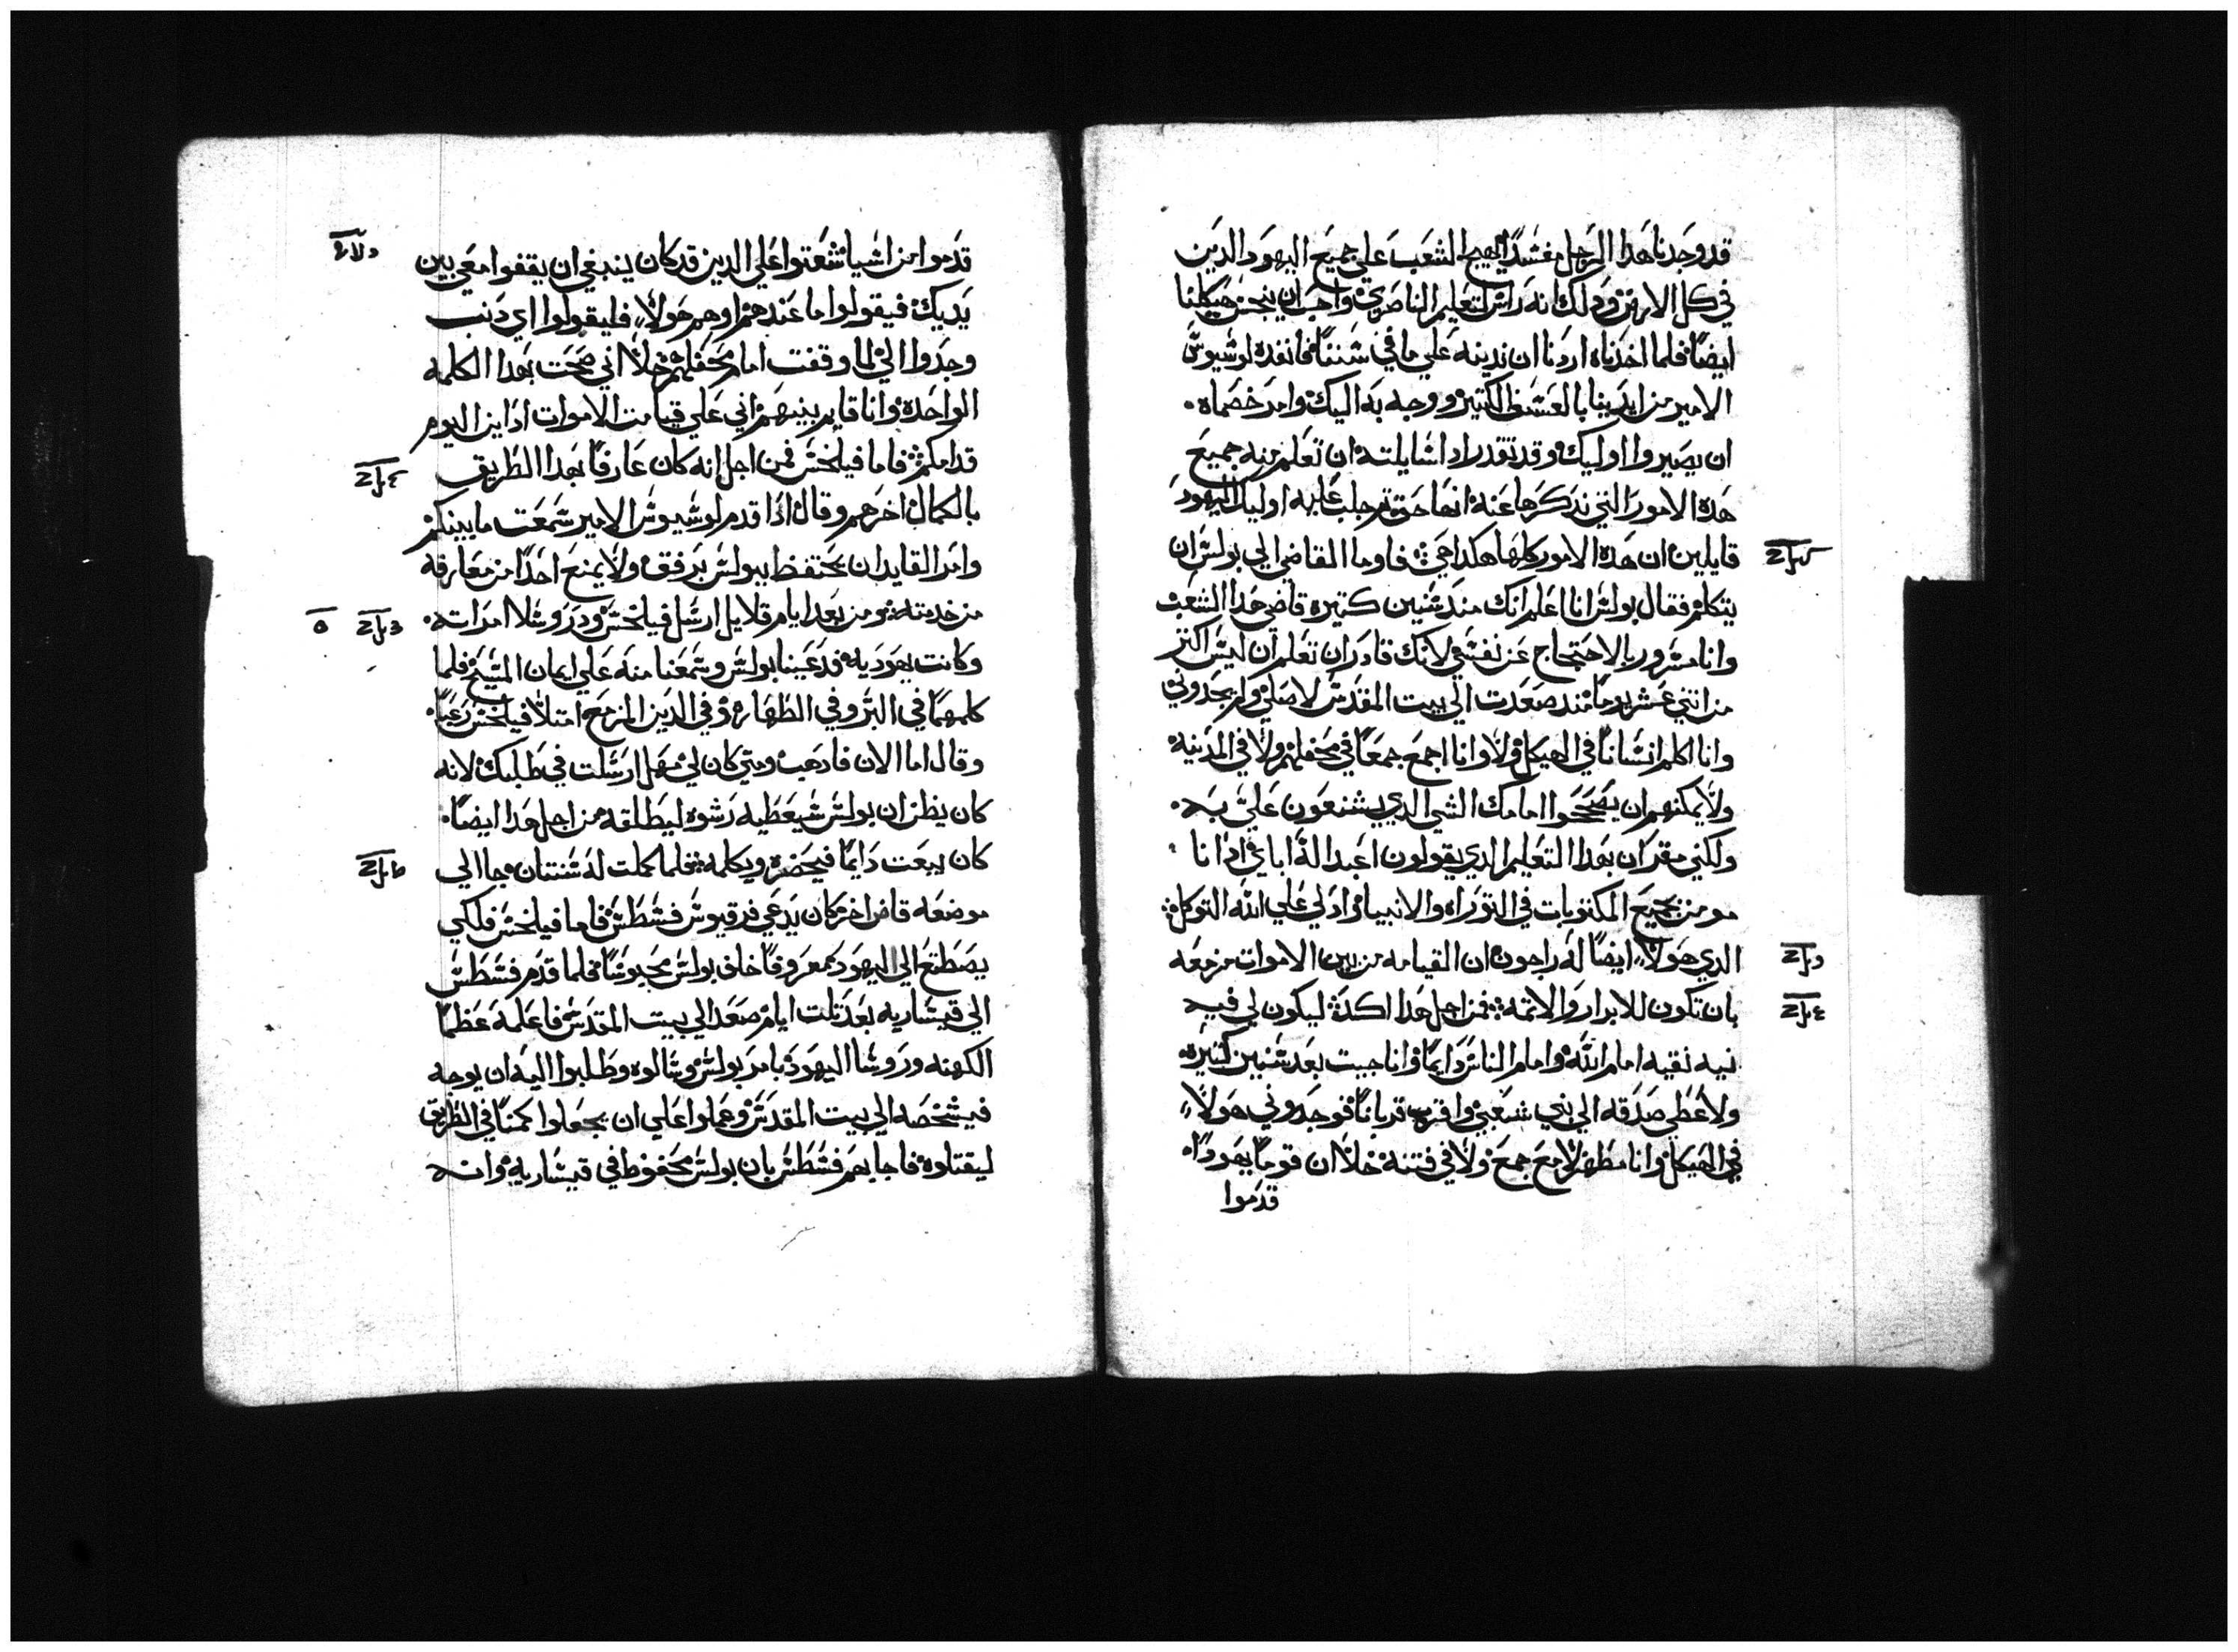 قد وجدنا هدا الرجل مفسدًا يهيج الشعب علي جميع اليهود الدين
في كل الارض ودلك انه راس لتعليم الناصري واحب ان ينجس هيكلنا
ايضًا فلما اخدناه اردنا ان ندينه علي ما في سنننا فانفده لوسيوس
الامير من ايدينا بالعسف الكتير ووجه به اليك وامر خصماه
ان يصيروا اوليك وقد تقدر ادا سايلته ان تعلم منه جميع
هده الامور التي ندكرها عنه انها حق تم جلب عليه اوليك اليهود
قايلين ان هده الامور كلها هكدا هي فاوما القاضي الي بولس ان
يتكلم فقال بولس انا اعلم انك مند سنين كتيره قاضي هدا الشعب
وانا مسرور بالاحتجاج عن نفسي لانك قادر ان تعلم ان ليس اكتر
من اتني عشر يومًا مند صعدت الي بيت المقدس لاصلي ولم يجدوني
وانا اكلم انسانًا في الهيكل ولا وانا اجمع جمعًا في محفلهم ولا في المدينه
ولا يمكنهم ان يصححوا امامك الشي الدي يشنعون علي به
ولكني مقر ان بهدا التعليم الدي يقولون اعبد الة اباي اد انا
مومن بجميع المكتوبات في التوراه والانبيا واد لي علي الله التوكل
الدي هولا ايضًا له راجون ان القيامه من بين الاموات مزمعه
بان تكون للابرار والاتمه فمن اجل هدا اكد ليكون لي فيه
نيه نقيه امام الله وامام الناس دايمًا وانا جيت بعد سنين كتيره
ولاعطي صدقه الي بني شعبي واقرب قربانًا فوجدوني هولا
في الهيكل وانا مطهر لا مع جمع ولا في فتنة خلا ان قومًا يهودًا
قدموا
قدموا من اسيا شغتوا علي الدين قد كان ينبغي ان يقفوا معي بين
يديك فيقولوا ما عندهم او هم هولا فليقولوا اي دنب
وجدوا الي لما وقفت امام محفلهم خلا اني صحت بهدا الكلمه
الواحدة وانا قايم بينهم اني علي قيامت الاموات ادان اليوم
قدامكم فاما فيلخس فمن اجل انه كان عارفًا بهدا الطريق
بالكمال اخرهم وقال ادا قدم لوسيوس الامير سمعت ما بينكم
وامر القايد ان يحتفظ ببولس برفق ولا يمنع احدًا من معارفه
من خدمته ومن بعد ايام قلايل ارسل فيلخس ودروسلا امراته
وكانت يهوديه فدعينا بولس وسمعنا منه علي ايمان المسيح فلما
كلمهما في البر وفي الطهاره وفي الدين المزمع امتلا فيلخس رعبًا
وقال اما الان فادهب ومتي كان لي مهل ارسلت في طلبك لانه
كان يظن ان بولس سيعطيه رشوه ليطلقه من اجل هدا ايضًا
كان يبعت دايمًا فيحضره ويكلمه فلما كملت له سنتان جا الي
موضعه قاض اخر كان يدعي فرقيوس فسطس فاما فيلخس فلكي
يصطنع الي اليهود معروفًا خلف بولس محبوسًا فلما قدم فسطس
الي قيساريه بعد تلت ايام صعد الي بيت المقدس فاعلمه عظما
الكهنه وروسا اليهود بامر بولس وسالوه وطلبوا اليه ان يوجه
فيشخصه الي بيت المقدس وعملوا علي ان يجعلوا كمنًا في الطريق
ليقتلوه فاجابهم فسطس بان بولس محفوظ في قيساريه وانه